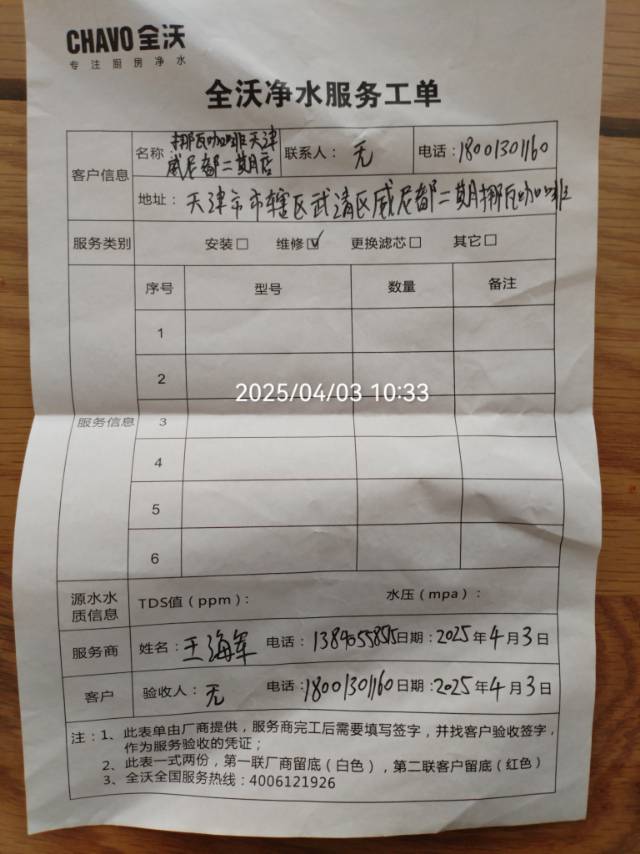 CHAVO 全沃
专注厨房净水
全沃净水服务工单
客户信息
名称 挪瓦咖啡天津
威尼都二期店
联系人：无
电话：18001301160
地址：天津市市辖区武清区威尼都二期挪瓦咖啡
服务类别 安装□ 维修☑ 更换滤芯□ 其它□
服务信息
序号 型号 数量 备注
1
2
2025/04/03 10:33
3
4
5
6
源水水
质信息
TDS值（ppm）： 水压（mpa）：
服务商 姓名：王海军 电话：13890558515 日期：2025年4月3日
客户 验收人：无 电话：18001301160 日期：2025年4月3日
注：1、此表单由厂商提供，服务商完工后需要填写签字，并找客户验收签字，
作为服务验收的凭证；
2、此表一式两份，第一联厂商留底（白色），第二联客户留底（红色）
3、全沃全国服务热线：4006121926